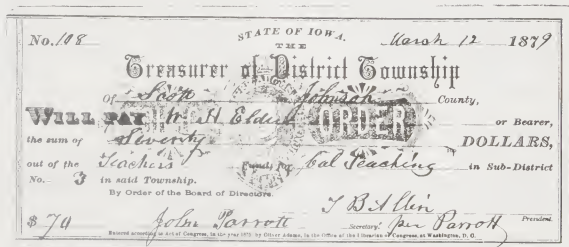 STATE OF IOWA.
No. 108 March 12 1879
THE
Treasurer of District Township
Of Scott Johnson County,
WILL PAY W. H. Elden ORDER or Bearer,
the sum of Seventy DOLLARS,
out of the Teachers Fund, for Teaching in Sub-District
No. 3 in said Township.
By Order of the Board of Directors.
$70 John Parrott Secretary. per Parrott President.
Entered according to Act of Congress, in the year 1875 by Oliver Adams, in the Office of the Librarian of Congress, at Washington, D. C.